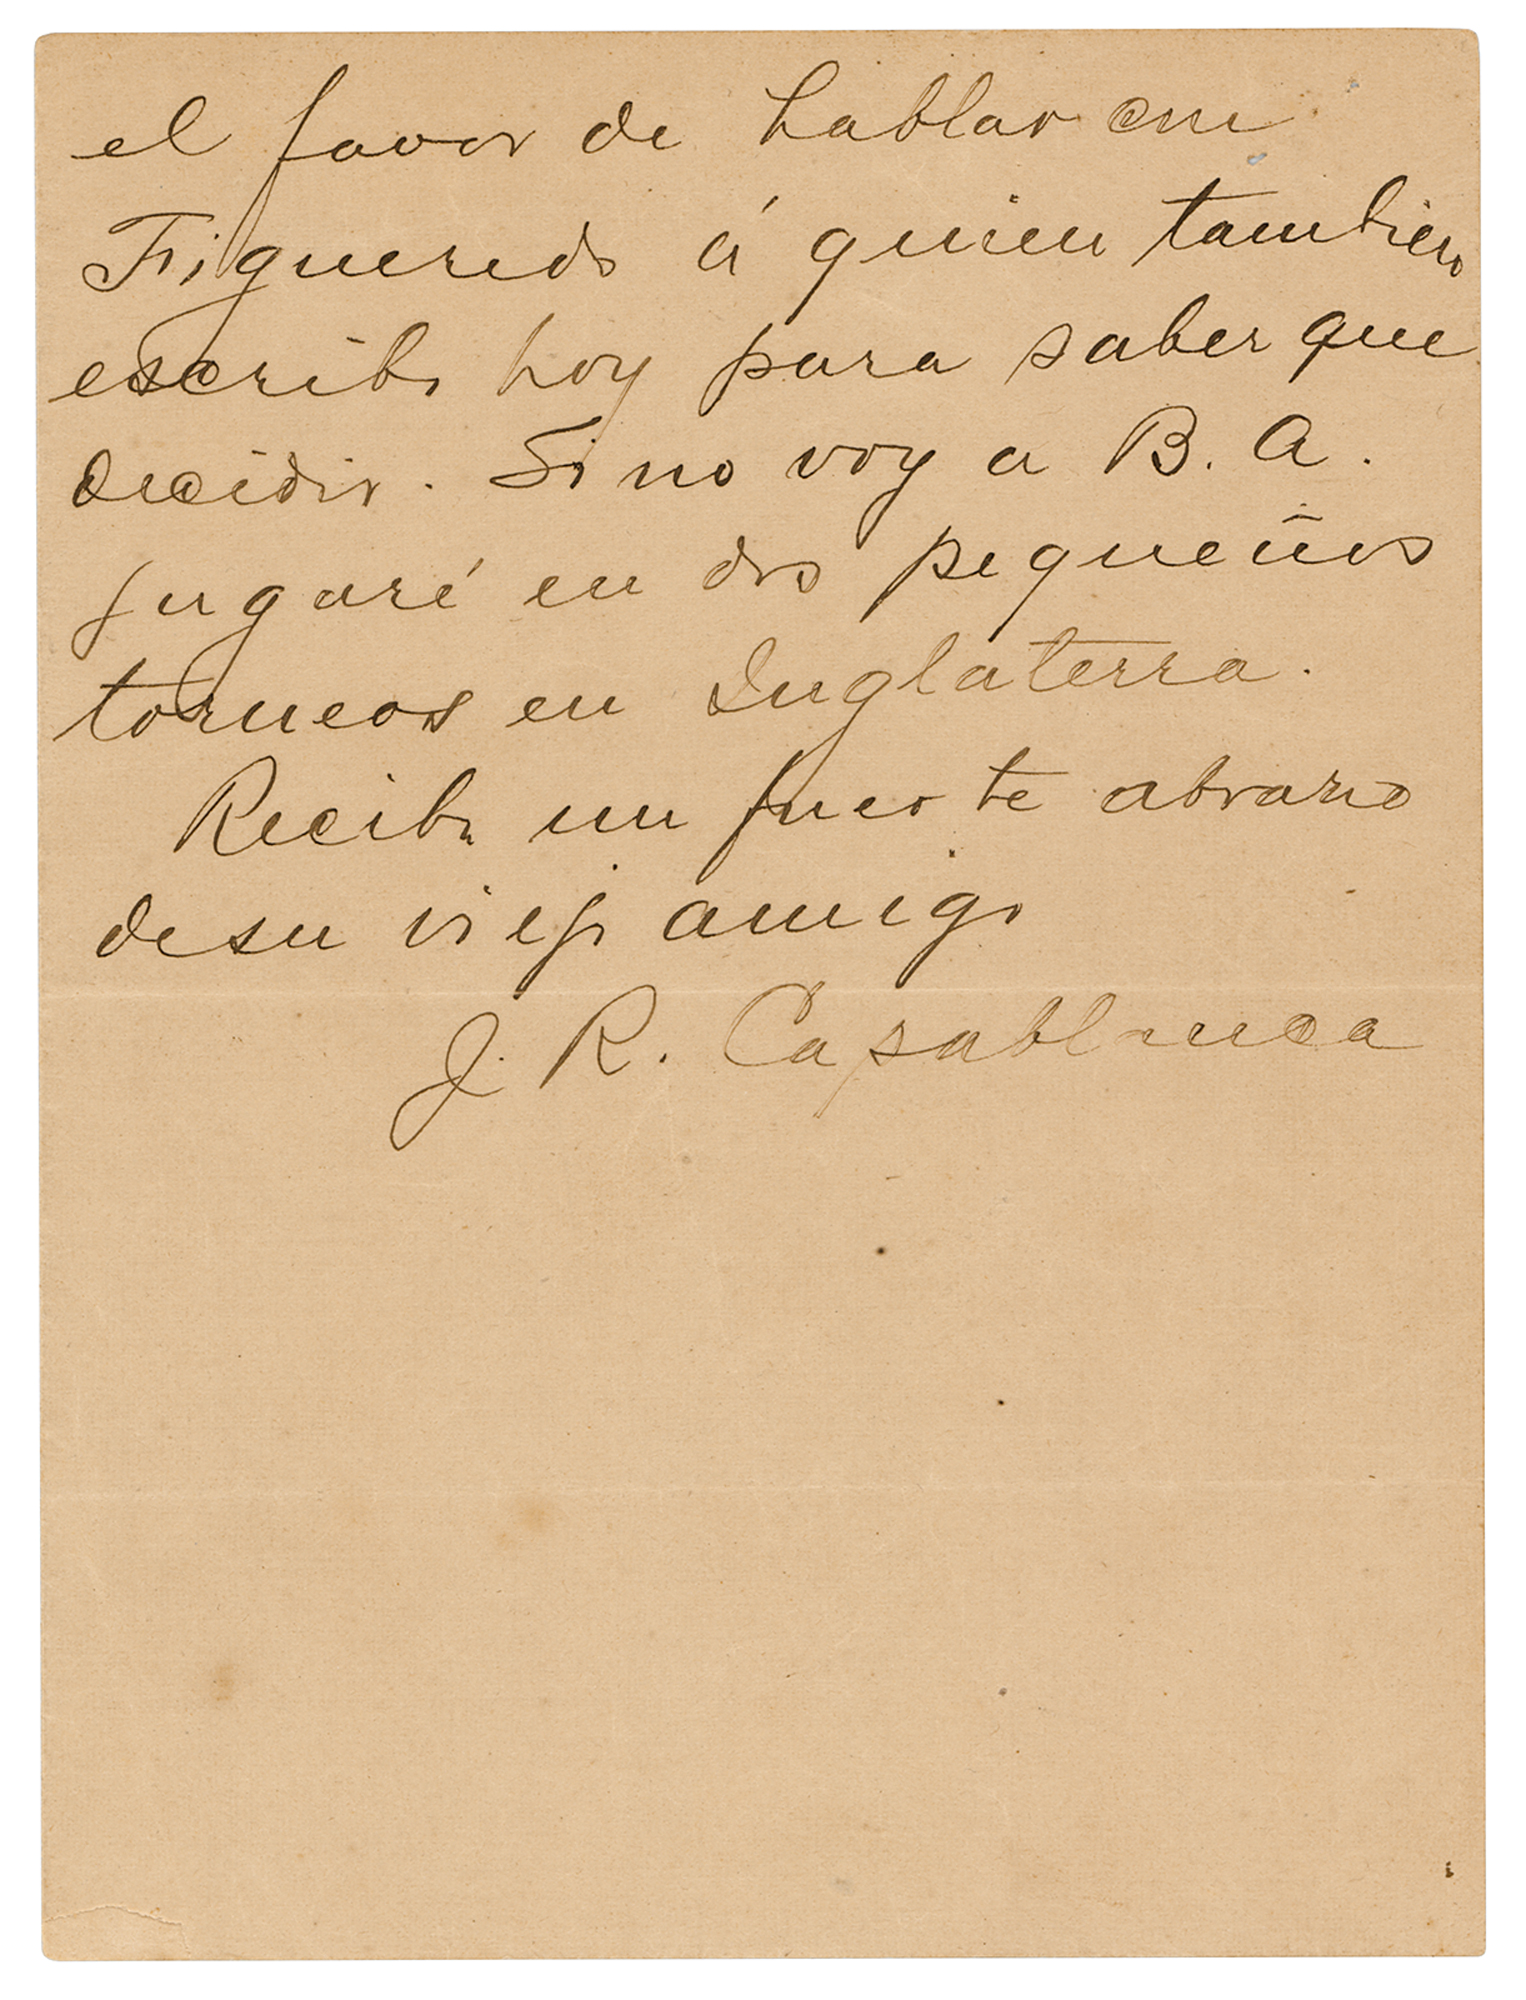 el favor de hablar con
Figueredo á quien tambien
escribo hoy para saber que
decidir. Si no voy a B. A.
jugaré en dos pequeños
torneos en Inglaterra.
Reciba un fuerte abrazo
de su viejo amigo
J. R. Capablanca